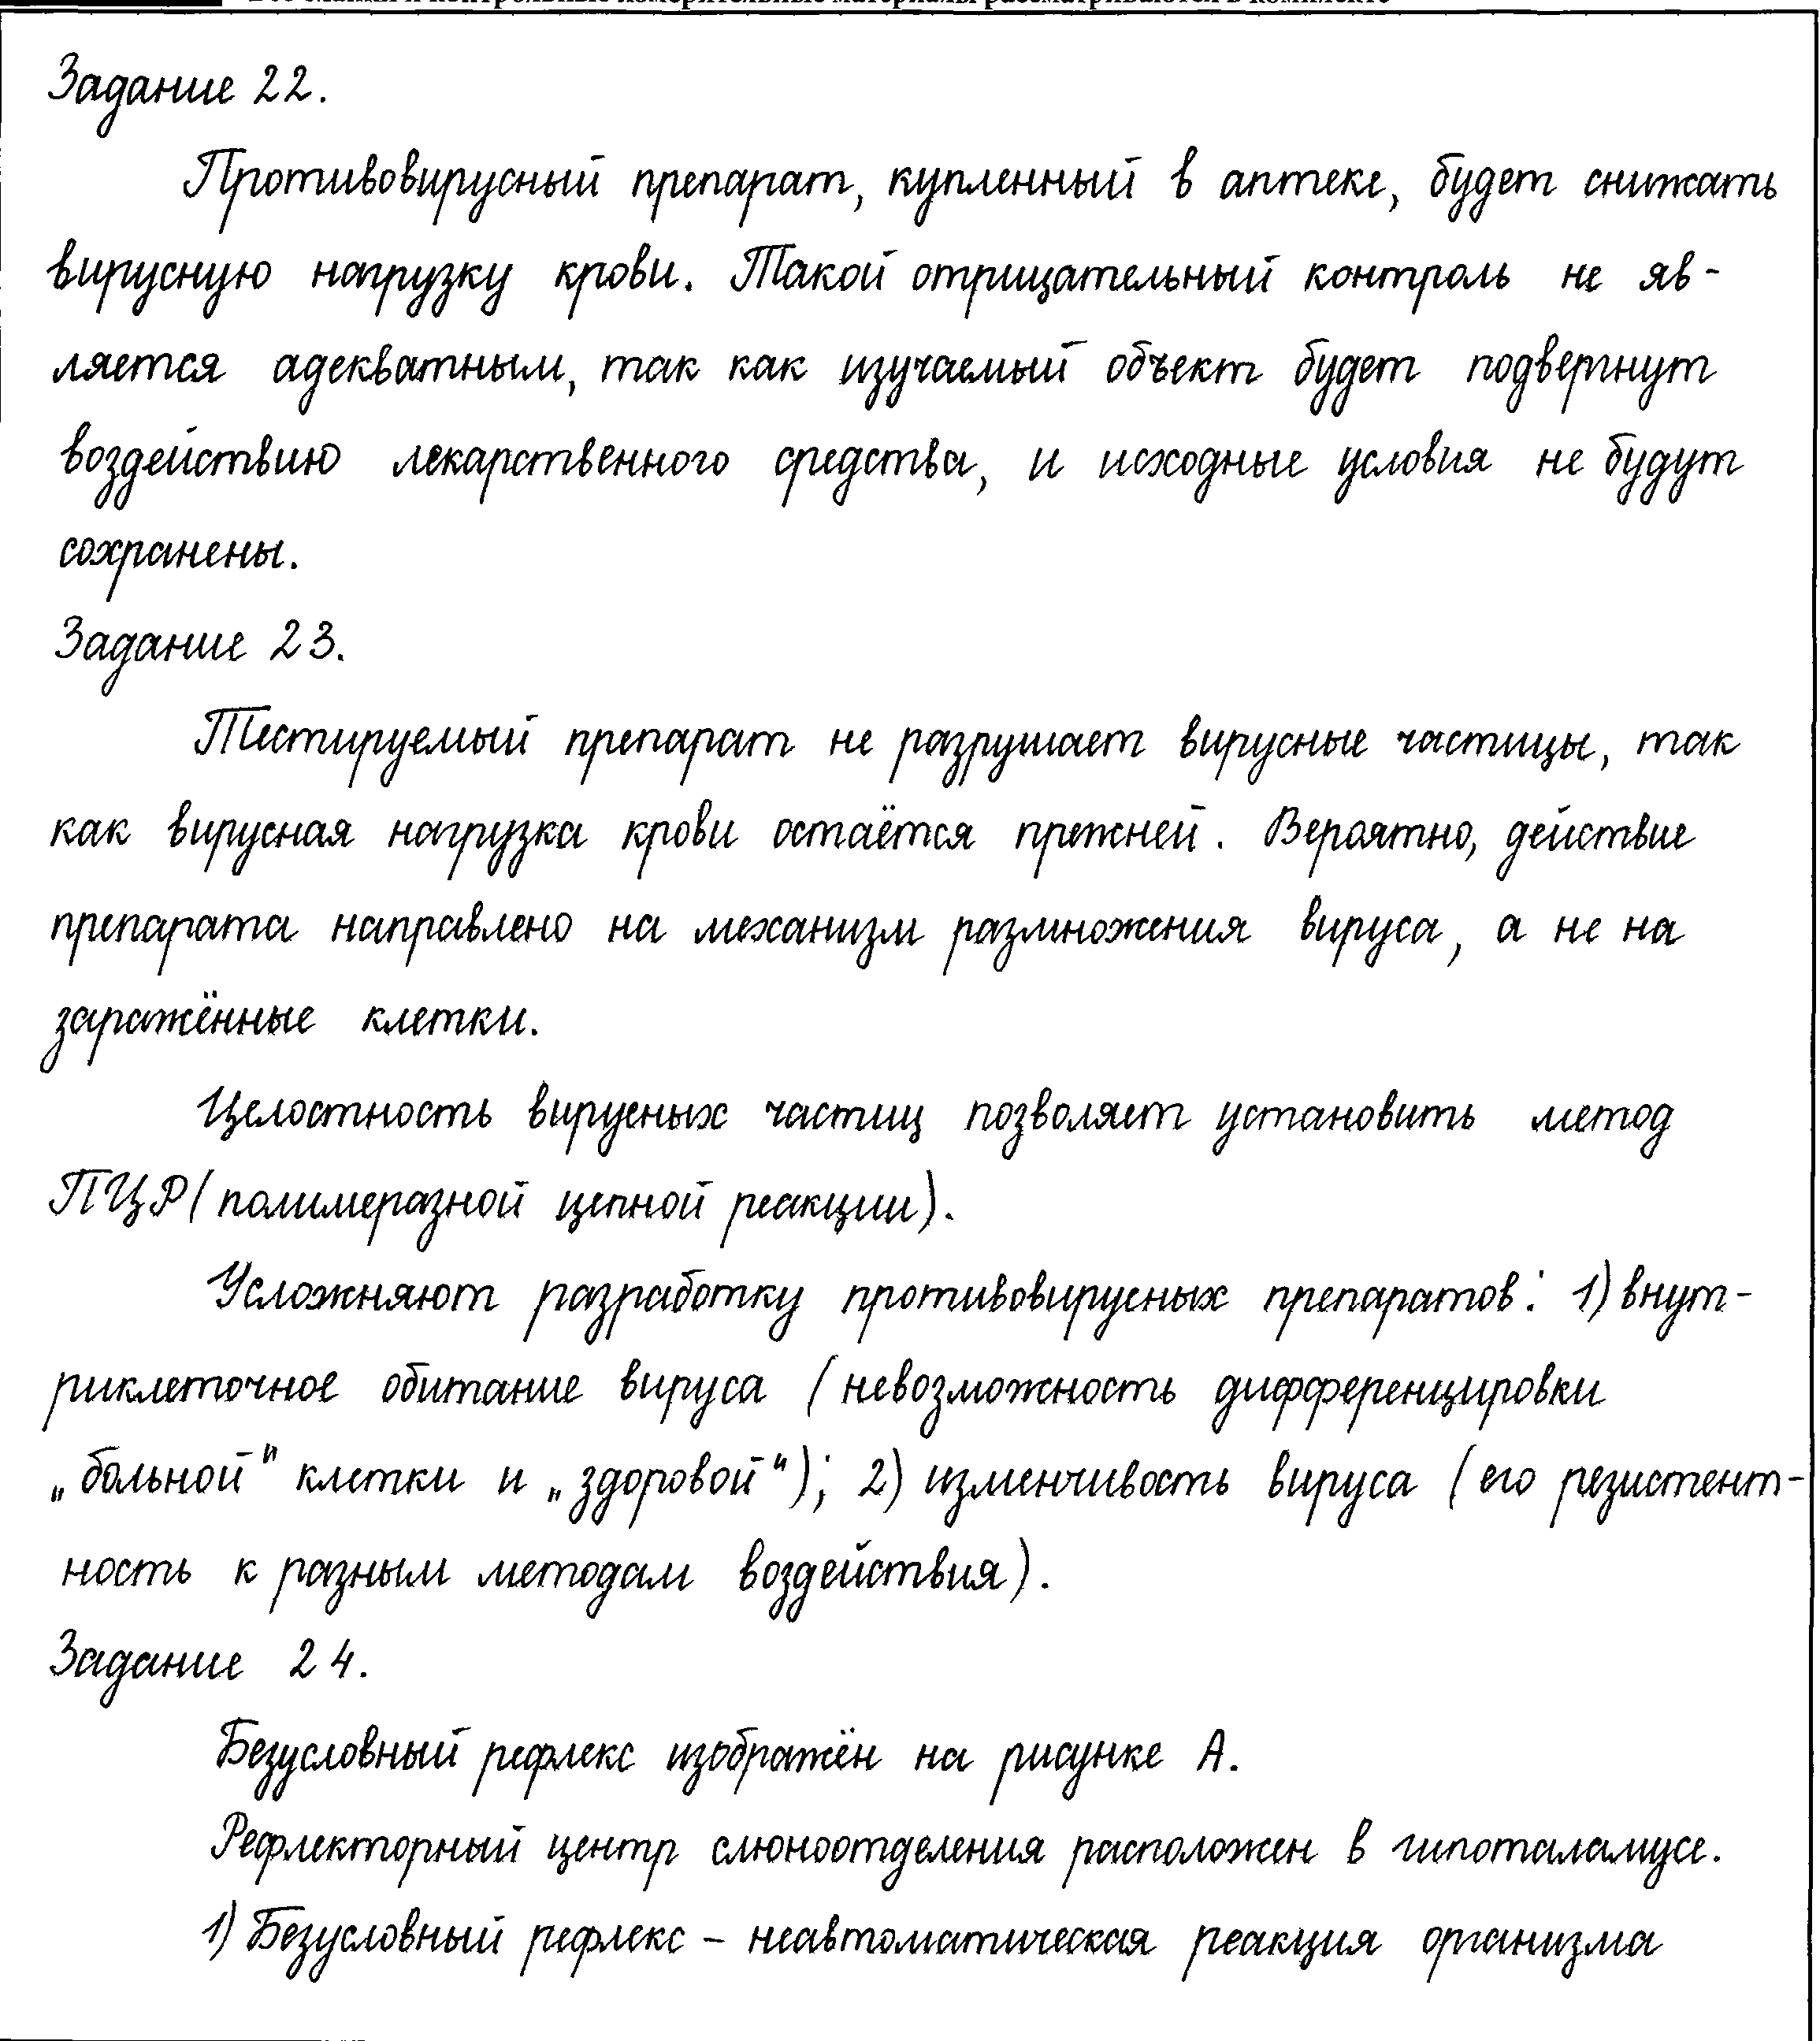 Все бланки и контрольные измерительные материалы рассматриваются в комплекте
Задание 22.
Противовирусный препарат, купленный в аптеке, будет снижать
вирусную нагрузку крови. Такой отрицательный контроль не яв-
ляется адекватным, так как изучаемый объект будет подвергнут
воздействию лекарственного средства, и исходные условия не будут
сохранены.
Задание 23.
Тестируемый препарат не разрушает вирусные частицы, так
как вирусная нагрузка крови остаётся прежней. Вероятно, действие
препарата направлено на механизм размножения вируса, а не на
заражённые клетки.
Целостность вирусных частиц позволяет установить метод
ПЦР (полимеразной цепной реакции).
Усложняют разработку противовирусных препаратов: 1) внут-
риклеточное обитание вируса (невозможность дифференцировки
„больной" клетки и „здоровой"); 2) изменчивость вируса (его резистент-
ность к разным методам воздействия).
Задание 24.
Безусловный рефлекс изображён на рисунке А.
Рефлекторный центр слюноотделения расположен в гипоталамусе.
1) Безусловный рефлекс – неавтоматическая реакция организма